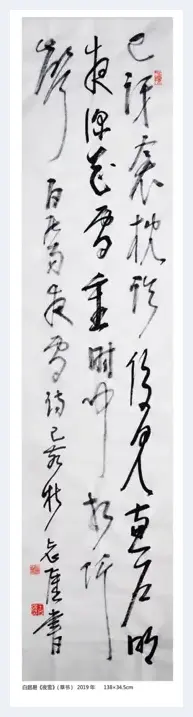 已讶衾枕冷复见窗户明
夜深知雪重时闻折竹
声 白居易夜雪诗己亥秋 志维书
白居易《夜雪》（草书） 2019年 138×34.5cm